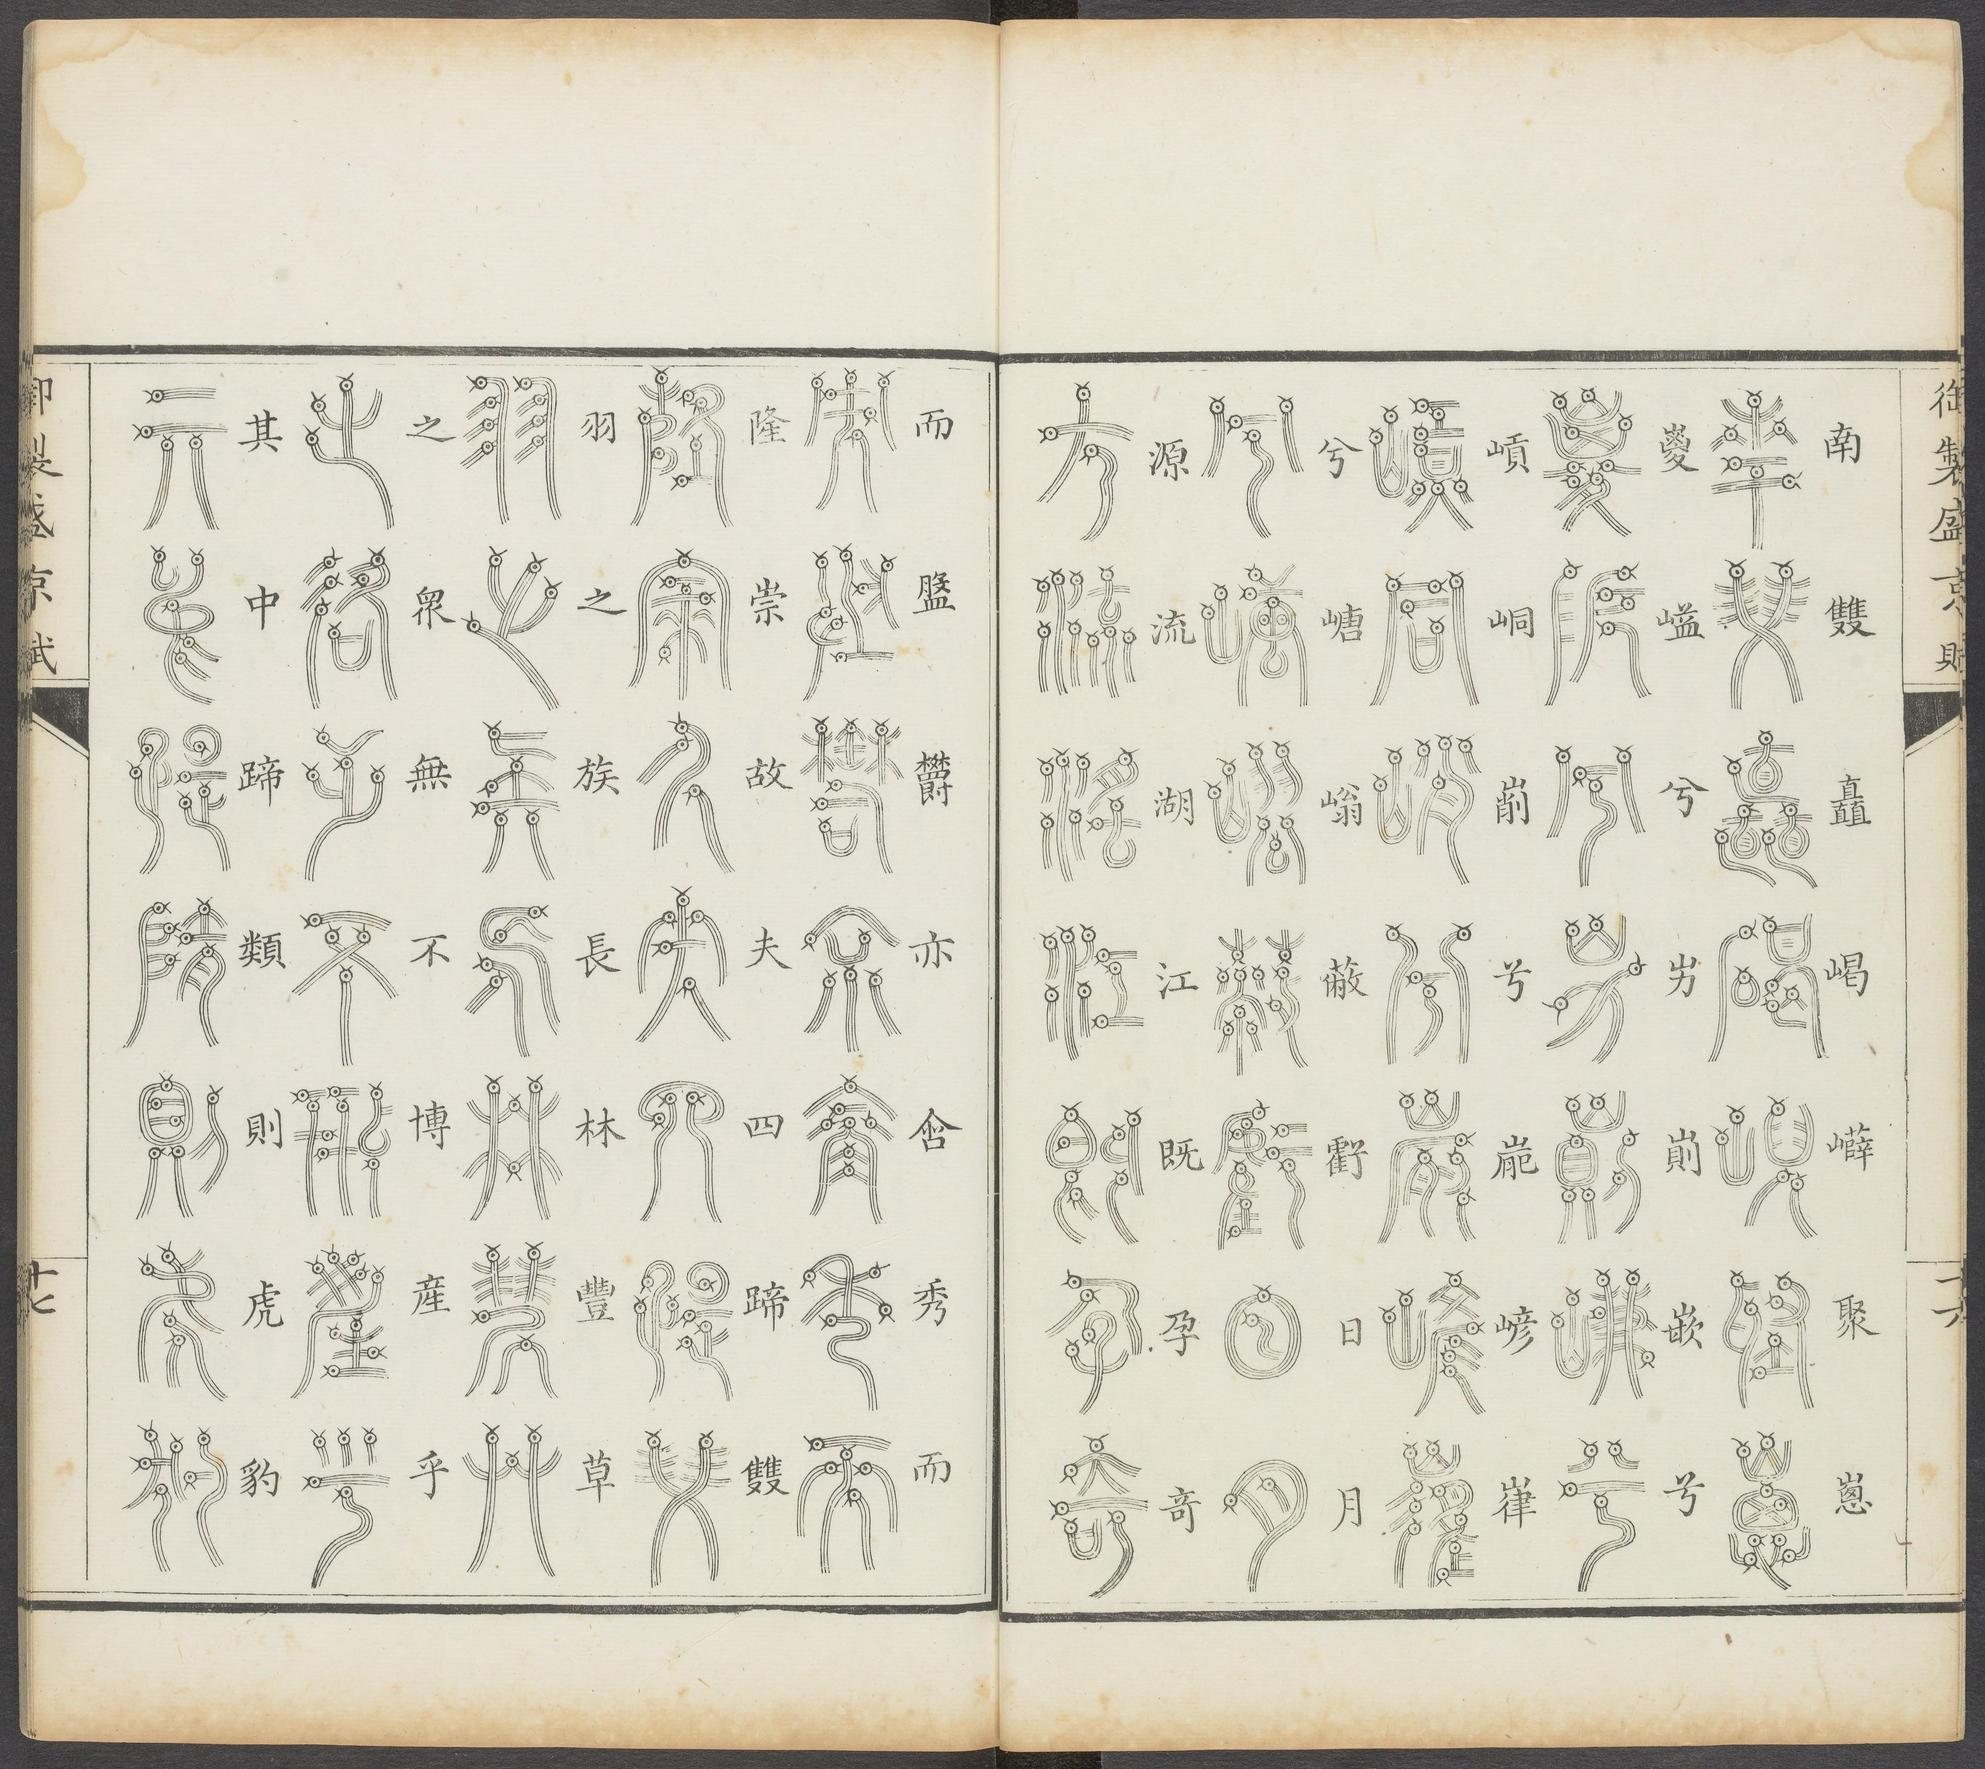 御製盛京賦
十六
南雙矗㟫㠔聚蔥
夔嵫兮屴崱嵌兮
㟧峒㓹兮㠜嵃嵂
兮嵣嵡蔽虧日月
源流湖江既孕奇
而盬欝亦含秀而
隆崇故夫四蹄雙
羽之族長林豐草
之衆無不博産乎
其中蹄類則虎豹
御製盛京賦
十七